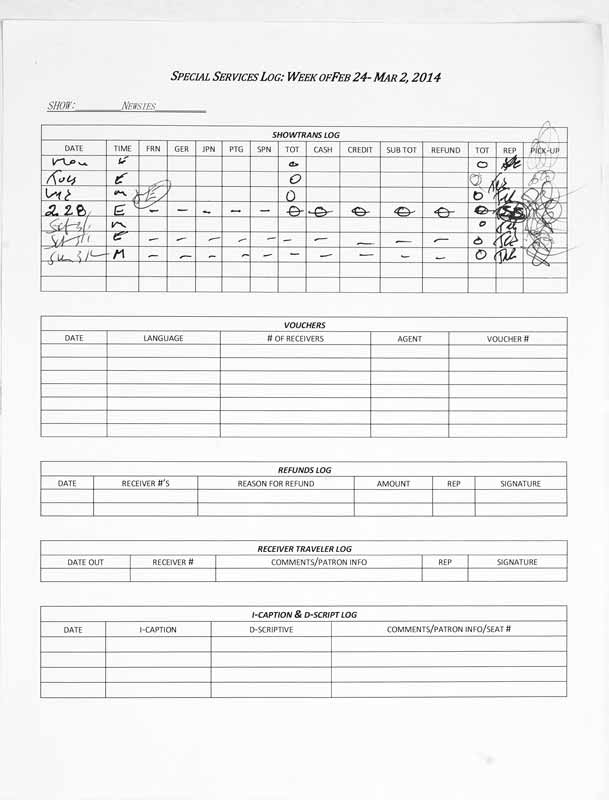 SPECIAL SERVICES LOG: WEEK OFFEB 24- MAR 2, 2014
SHOW: NEWSIES
SHOWTRANS LOG
DATE TIME FRN GER JPN PTG SPN TOT CASH CREDIT SUB TOT REFUND TOT REP PICK-UP
Mon E O O
Tues E O O
M E O
2.28 E - - - - - O O O O O O
Sat 3/1 M O
Sat 3/1 E - - - - - - - - - O
Sun 3/2 M - - - - - - - - - O
VOUCHERS
DATE LANGUAGE # OF RECEIVERS AGENT VOUCHER #
REFUNDS LOG
DATE RECEIVER #'S REASON FOR REFUND AMOUNT REP SIGNATURE
RECEIVER TRAVELER LOG
DATE OUT RECEIVER # COMMENTS/PATRON INFO REP SIGNATURE
I-CAPTION & D-SCRIPT LOG
DATE I-CAPTION D-SCRIPTIVE COMMENTS/PATRON INFO/SEAT #